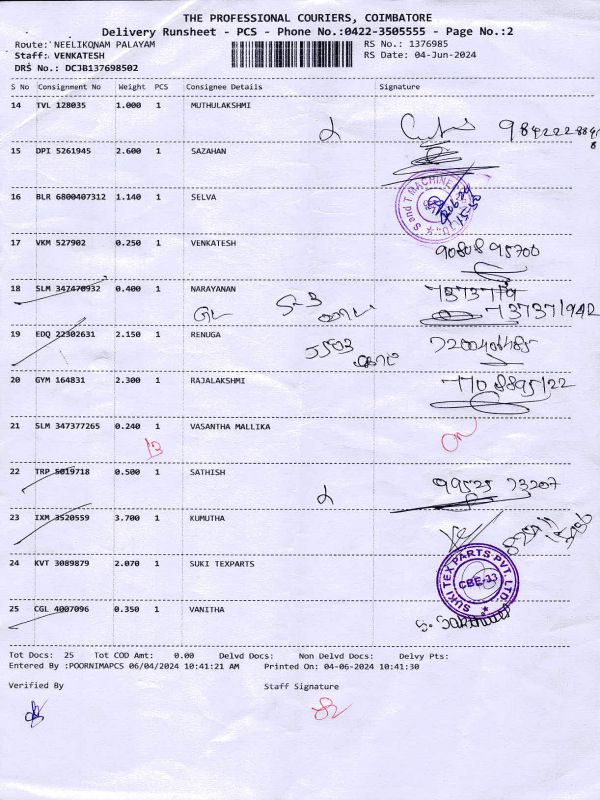 THE PROFESSIONAL COURIERS, COIMBATORE
Delivery Runsheet - PCS - Phone No.:0422-3505555 - Page No.:2
Route: NEELIKONAM PALAYAM RS No.: 1376985
Staff: VENKATESH RS Date: 04-Jun-2024
DRS No.: DCJB137698502
S No Consignment No Weight PCS Consignee Details Signature
14 TVL 128035 1.000 1 MUTHULAKSHMI
15 DPI 5261945 2.600 1 SAZAHAN
16 BLR 6800407312 1.140 1 SELVA
S and T MACHINE
17 VKM 527902 0.250 1 VENKATESH
90808 95700
18 SLM 347470932 0.400 1 NARAYANAN
19 EDQ 22302631 2.150 1 RENUGA
7200406485
20 GYM 164831 2.300 1 RAJALAKSHMI
21 SLM 347377265 0.240 1 VASANTHA MALLIKA
13
22 TRP 5019718 0.500 1 SATHISH
99525 73207
23 IXM 3520559 3.700 1 KUMUTHA
24 KVT 3089879 2.070 1 SUKI TEXPARTS
SUKI TEX PARTS PVT. LTD.
CBE-33
25 CGL 4007096 0.350 1 VANITHA
Tot Docs: 25 Tot COD Amt: 0.00 Delvd Docs: Non Delvd Docs: Delvy Pts:
Entered By :POORNIMAPCS 06/04/2024 10:41:21 AM Printed On: 04-06-2024 10:41:30
Verified By Staff Signature